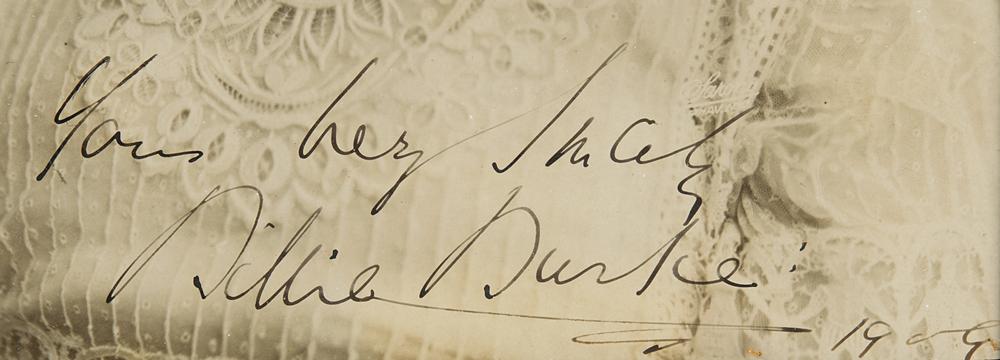 Yours very Sincerely
Billie Burke:
1909